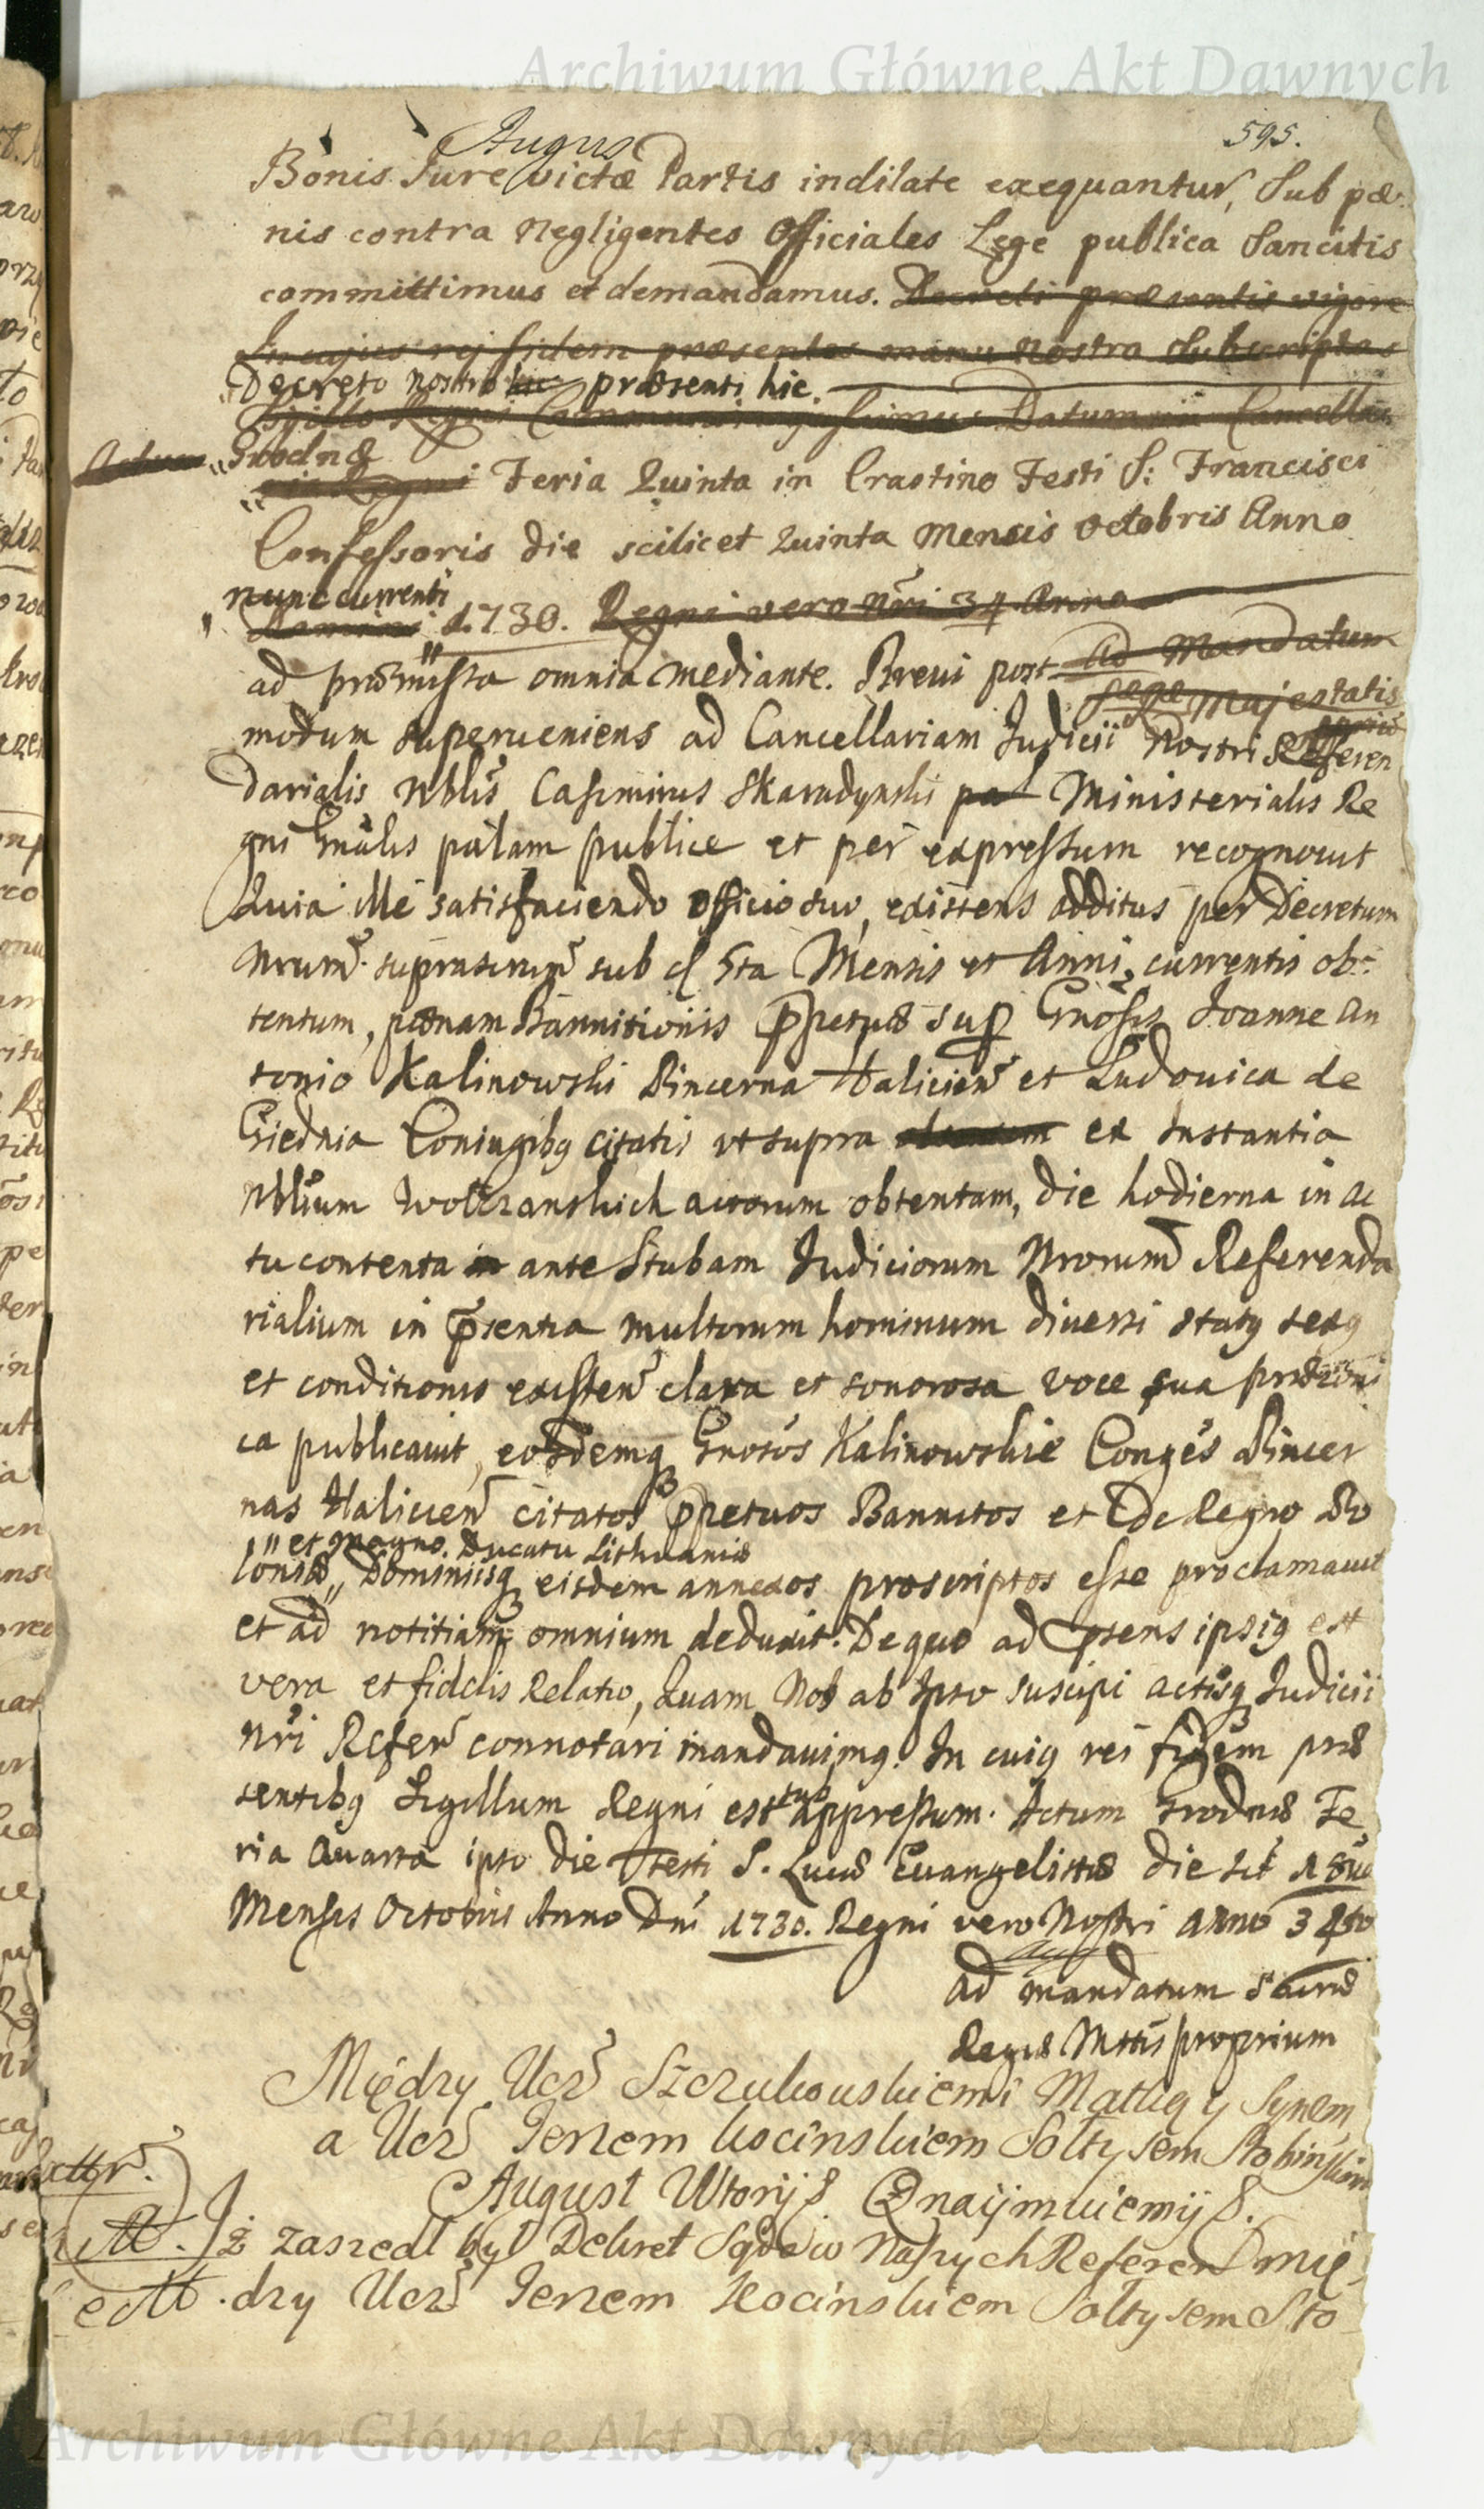 Archiwum Główne Akt Dawnych
595.
Augus
Bonis Jure victæ Partis indilate exequantur, Sub pæ-
nis contra Negligentes Officiales Lege publica Sancitis
committimus et demandamus. Decreti præsentis vigore
In cujus rej fidem præsentes manu Nostra Subscriptas
Decreto nostro præsenti hic.
Sigillo Regni Communiri jussimus. Datum in Cancella
Actum Grodnæ
ria Regni Feria Quinta in Crastino Festi S: Francisci
Confessoris die scilicet Quinta Mensis Octobris Anno
nunc currenti
Domini 1730. Regni vero Nri 34 Anno
ad præmissa omnia mediante. Brevi post Ad Mandatum
Sacræ Majestatis
modum superveniens ad Cancellariam Judicii Nostri Referen
darialis Nblis Casimirus Skaradynski pal Ministerialis Re
gni Gnalis palam publice et per expressum recognovit
Quia ille satisfaciendo officio suo, existens additus per Decretum
Nrum suprascrum sub d 5ta Mensis et Anni currentis ob-
tentum, pœnam Bannitionis ppetuæ sup Gnosis Joanne An
tonio Kalinowski Pincerna Halicien et Ludovica de
Giednia Coniugibq citatis ut supra ex Instantia
Nblium Wolczanskich actorum obtentam, die hodierna in ac
tu contenta in ante Stubam Judiciorum Nrorum Referenda
rialium in psentia multorum hominum diversi statq sexq
et conditionis existen clara et sonorosa voce sua præconi
ca publicavit, eosdemq Gnosos Kalinowskie Conges Pincer
nas Halicien citatos ppetuos Bannitos et de Regno Po
et Magno Ducatu Lithuaniæ
loniæ Dominiisq eisdem annexos proscriptos esse proclamavit
et ad notitiam omnium deduxit. De quo ad psens ipsiq est
vera et fidelis Relatio, Quam Nos ab Ipso suscipi actisq Judicii
Nri Refer connotari mandavimq. In cuiq rei fidem præ
sentibq Sigillum Regni est sub appressum. Actum Grodnæ Fe
ria Quarta ipso die Festi S. Lucæ Evangelistæ die sct 18va
Mensis Octobris Anno Dni 1730. Regni vero Nostri anno 34to
ad mandatum Sacræ
Regiæ Mttis proprium
Między Ucz Szczukowskiemi Matką y Synem
a Ucz Jerzem Kocinskiem Sołtysem Stobinskim
August Wtory &. Oznaijmuiemy &.
Iż zaszedł był Dekret Sądów Naszych Referen mię
dzy Ucz Jerzem Kocinskiem Sołtysem Sto
Archiwum Główne Akt Dawnych